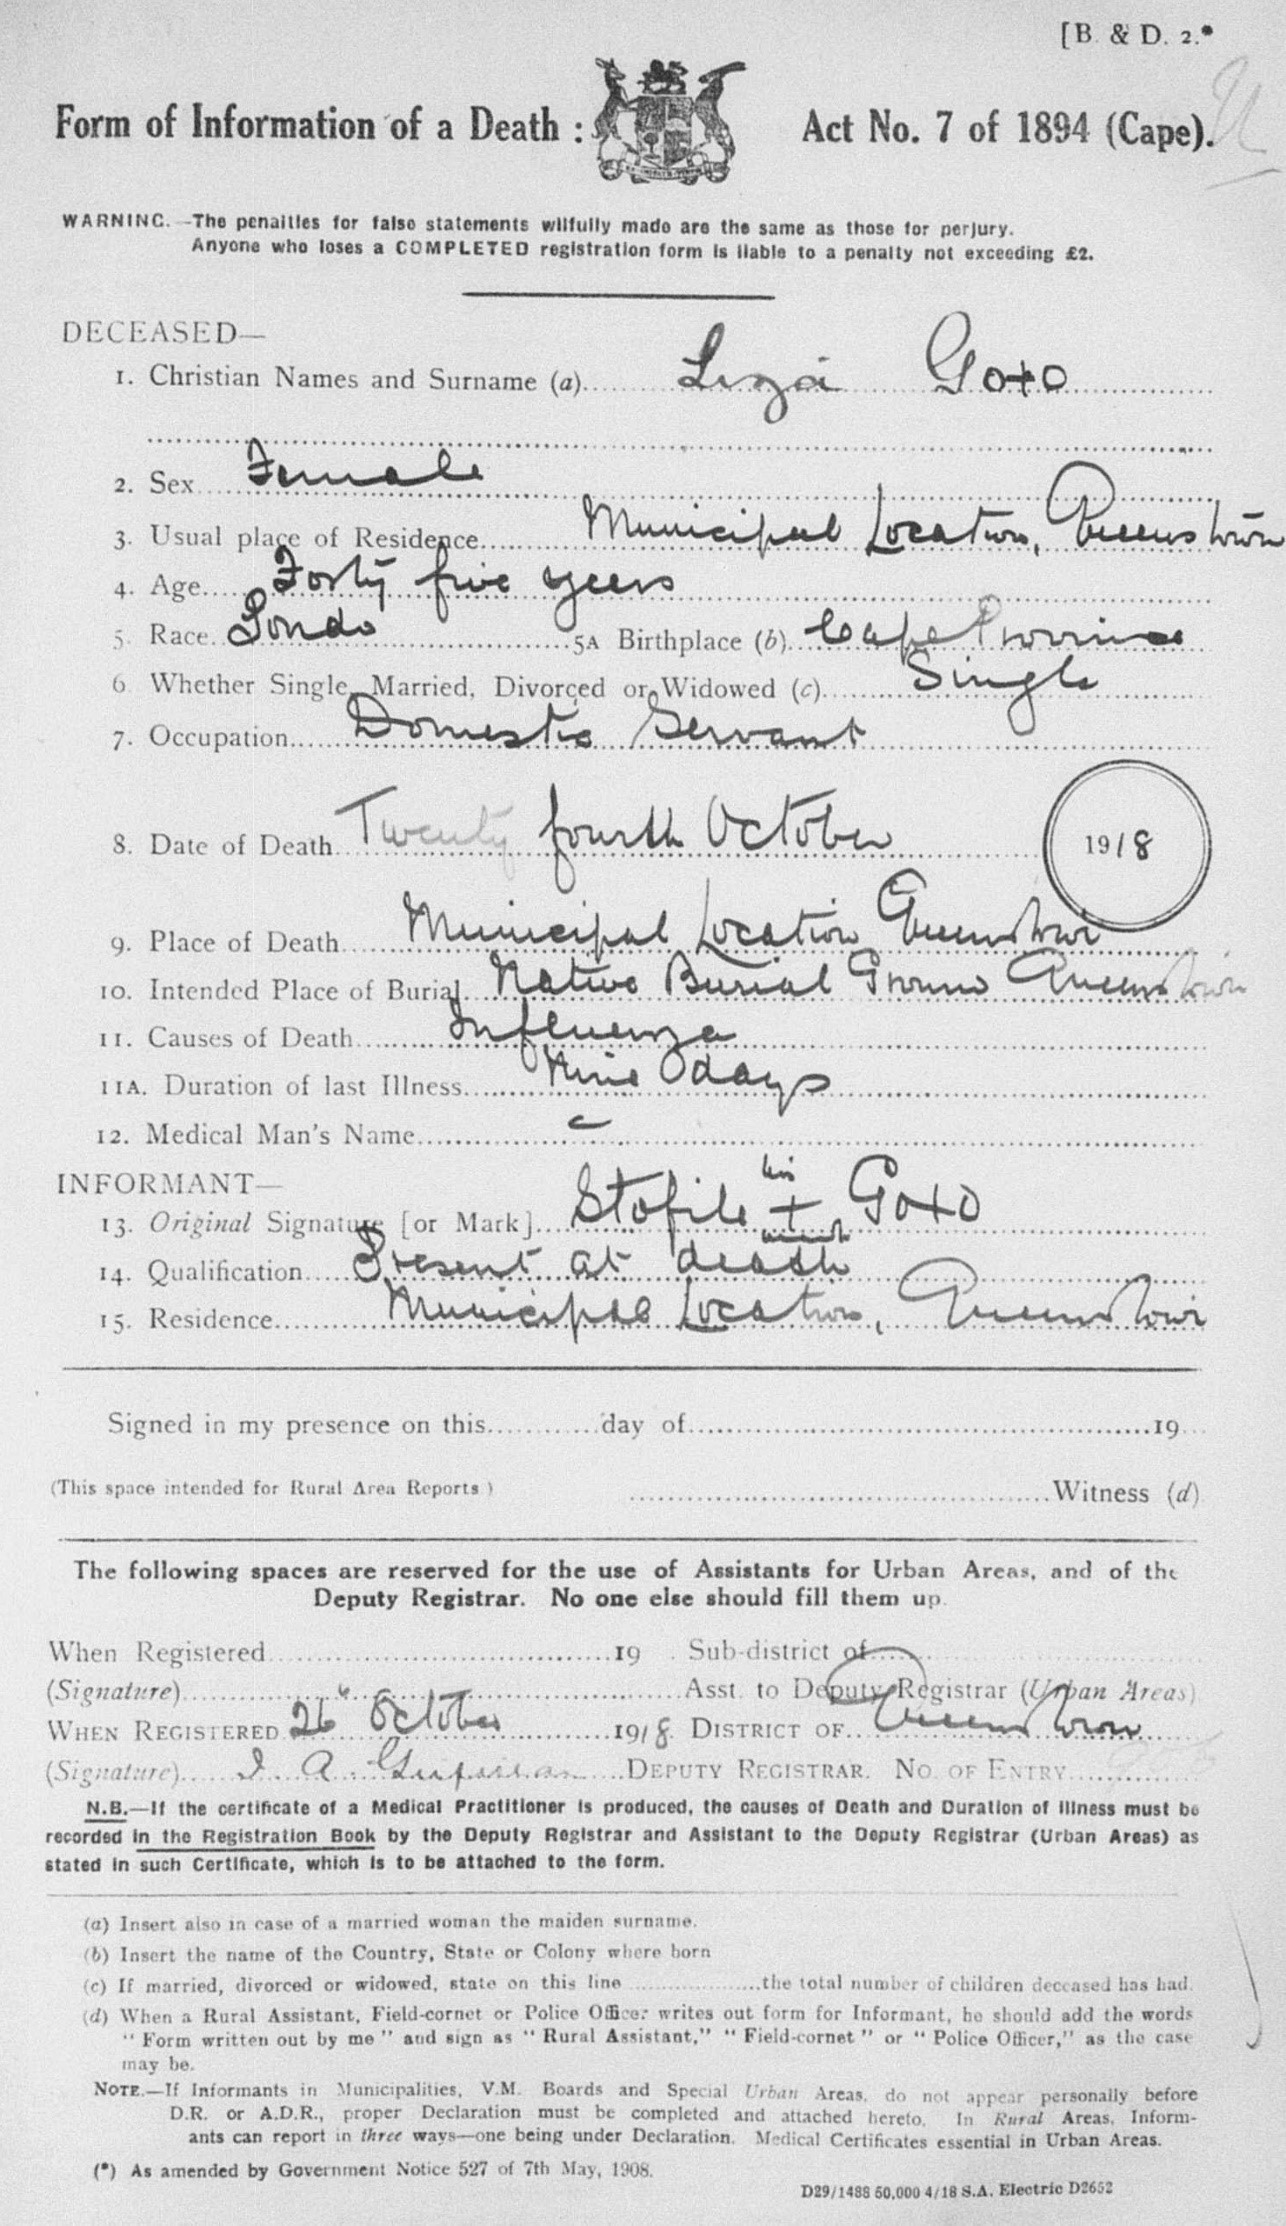 [B. & D. 2.*
Form of Information of a Death : Act No. 7 of 1894 (Cape).
WARNING.—The penalties for false statements wilfully made are the same as those for perjury.
Anyone who loses a COMPLETED registration form is liable to a penalty not exceeding £2.
DECEASED—
1. Christian Names and Surname (a) Liza Goxo
2. Sex Female
3. Usual place of Residence Municipal Location, Queenstown
4. Age Forty five years
5. Race Pondo 5A Birthplace (b) Cape Province
6 Whether Single, Married, Divorced or Widowed (c) Single
7. Occupation Domestic Servant
8. Date of Death Twenty fourth October 1918
9. Place of Death Municipal Location Queenstown
10. Intended Place of Burial Native Burial Ground Queenstown
11. Causes of Death Influenza
11A. Duration of last Illness Nine days
12. Medical Man's Name —
INFORMANT—
13. Original Signature [or Mark] Stofile his + mark Goxo
14. Qualification Present at death
15. Residence Municipal Location, Queenstown
Signed in my presence on this day of 19
(This space intended for Rural Area Reports) Witness (d)
The following spaces are reserved for the use of Assistants for Urban Areas, and of the
Deputy Registrar. No one else should fill them up.
When Registered 19 . Sub-district of
(Signature) Asst. to Deputy Registrar (Urban Areas)
WHEN REGISTERED 26 October 1918. DISTRICT OF Queenstown
(Signature) DEPUTY REGISTRAR. NO. OF ENTRY
N.B.—If the certificate of a Medical Practitioner is produced, the causes of Death and Duration of Illness must be
recorded in the Registration Book by the Deputy Registrar and Assistant to the Deputy Registrar (Urban Areas) as
stated in such Certificate, which is to be attached to the form.
(a) Insert also in case of a married woman the maiden surname.
(b) Insert the name of the Country, State or Colony where born
(c) If married, divorced or widowed, state on this line the total number of children deceased has had.
(d) When a Rural Assistant, Field-cornet or Police Officer writes out form for Informant, he should add the words
" Form written out by me " and sign as " Rural Assistant," " Field-cornet " or " Police Officer," as the case
may be.
NOTE.—If Informants in Municipalities, V.M. Boards and Special Urban Areas, do not appear personally before
D.R. or A.D.R., proper Declaration must be completed and attached hereto. In Rural Areas, Inform-
ants can report in three ways—one being under Declaration. Medical Certificates essential in Urban Areas.
(*) As amended by Government Notice 527 of 7th May, 1908.
D29/1488 50,000 4/18 S.A. Electric D2652